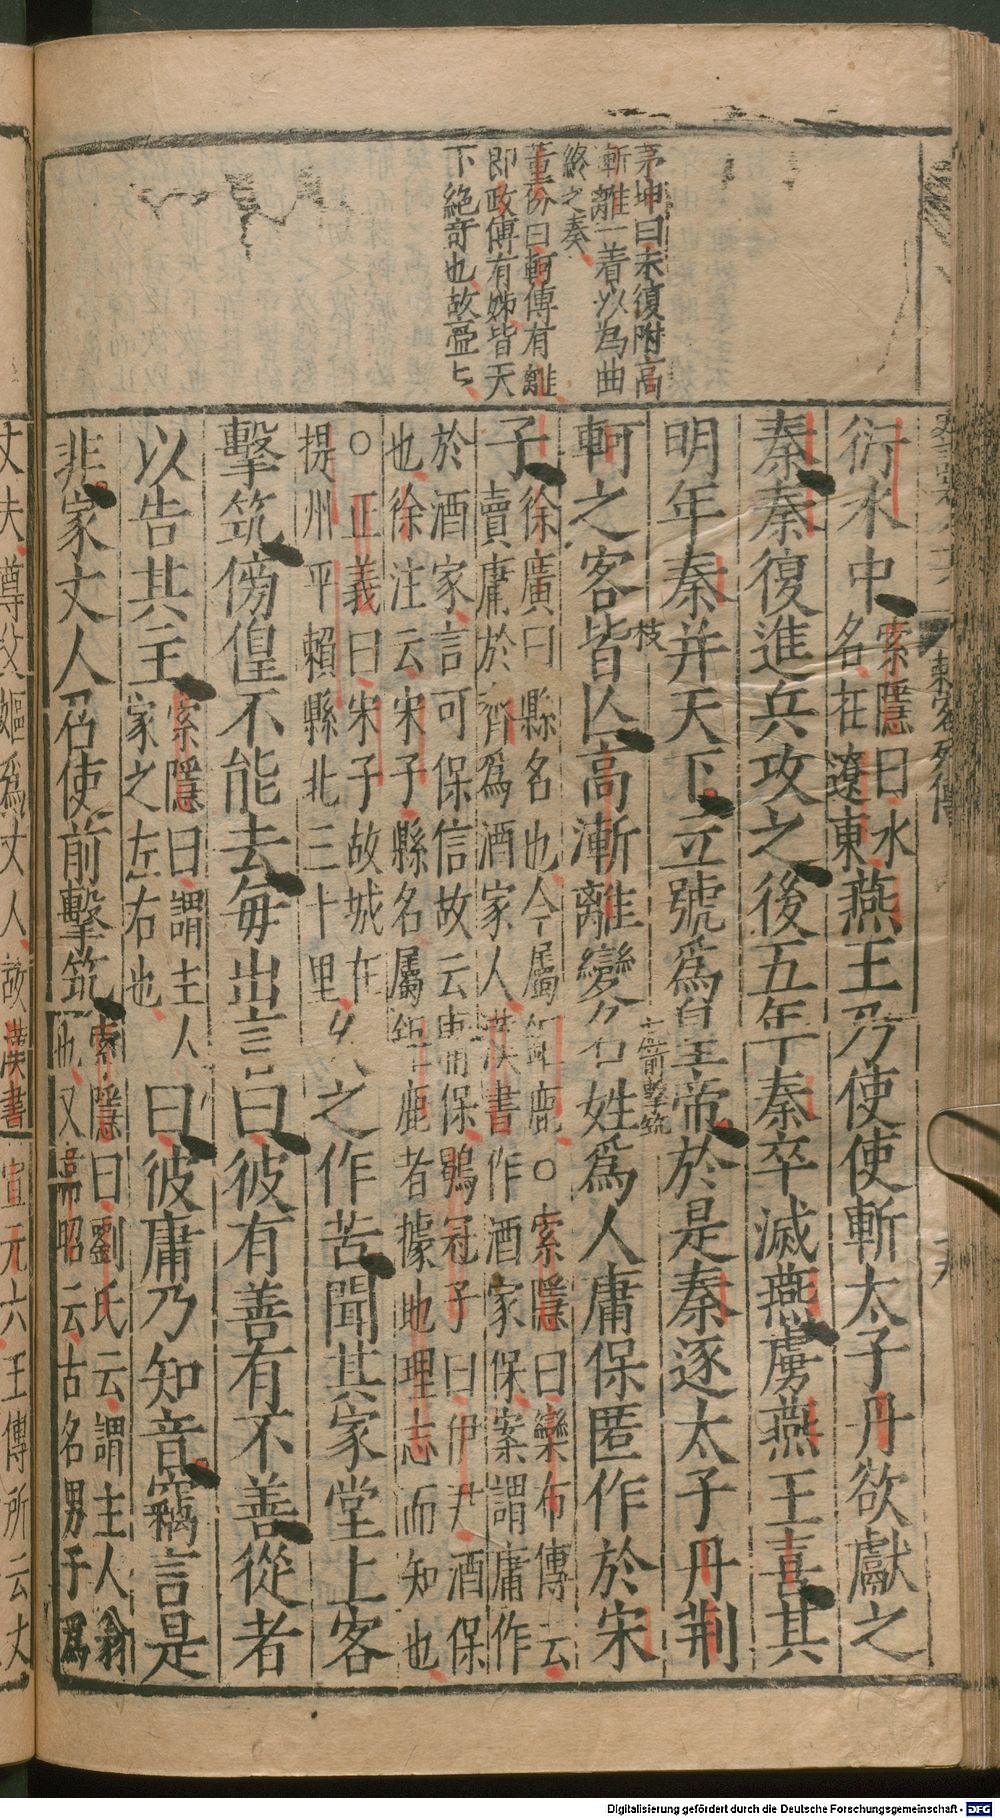 茅坤曰未復附高
漸離一着以為曲
終之奏
董份曰軻傳有離
即政傳有姊皆天
下絕奇也故壹與
刺客列傳
衍水中
索隱曰水
名在遼東
燕王乃使使斬太子丹欲獻之
秦秦復進兵攻之後五年秦卒滅燕虜燕王喜其
明年秦并天下立號爲皇帝於是秦逐太子丹荆
枝
前擊筑
軻之客皆亾高漸離變名姓爲人庸保匿作於宋
子
徐廣曰縣名也今屬鉅鹿○索隱曰欒布傳云
賣庸於齊爲酒家人漢書作酒家保案謂庸作
於酒家言可保信故云庸保鶡冠子曰伊尹酒保
也徐注云宋子縣名屬鉅鹿者據地理志而知也
○正義曰宋子故城在
州平賴縣北三十里
久之作苦聞其家堂上客
擊筑傍偟不能去每出言曰彼有善有不善從者
以告其主
索隱曰謂主人
家之左右也
曰彼庸乃知音竊言是
非家丈人召使前擊筑
索隱曰劉氏云謂主人翁
也又韋昭云古名男子爲
丈夫尊父嫗爲丈人故漢書宣元六王傳所云丈
Digitalisierung gefördert durch die Deutsche Forschungsgemeinschaft - DFG